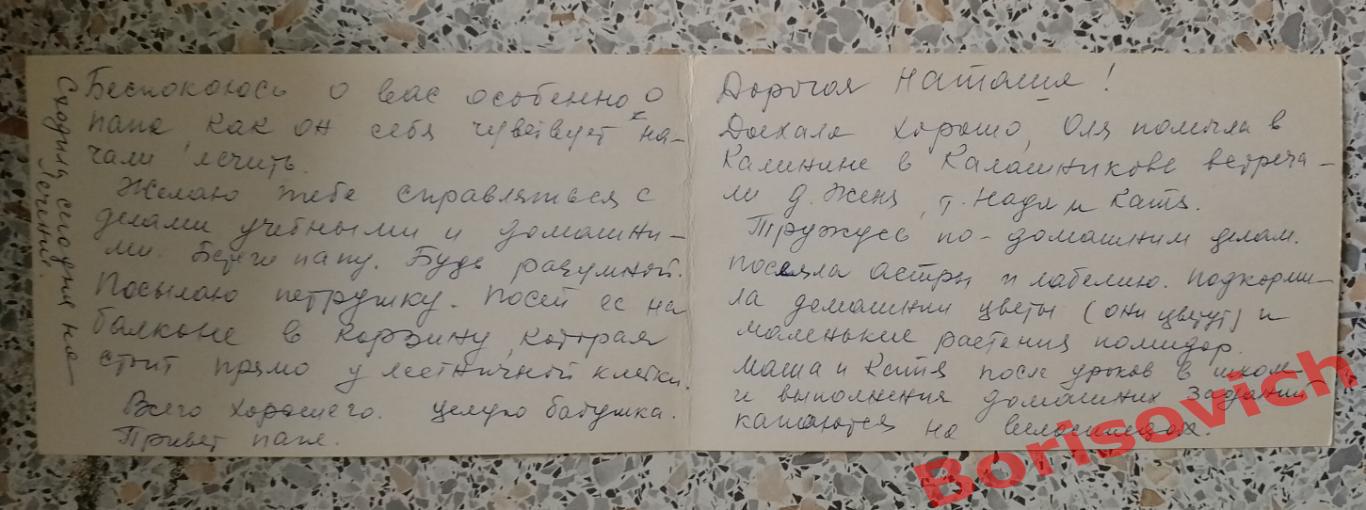 Дорогая Наташа!
Доехала хорошо, Оля помыла в
Калинине в Калашникове встреча-
ли д. Женя, т. Надя и Катя.
Тружусь по-домашним делам.
посеяла астры и лабелию. подкорми-
ла домашнии цветы (они цветут) и
маленькие растения помидор.
Маша и Катя после уроков в школ
и выполнения домашних заданий
катаются на велосипедах.
Беспокоюсь о вас особенно о
папе как он себя чувствует на-
чали лечить.
Желаю тебе справляться с
делами учебными и домашни-
ми. Береги папу. Будь разумной.
Посылаю петрушку. Посей ее на
балконе в корзину, которая
стоит прямо у лестничной клетки.
Всего хорошего. целую бабушка.
Привет папе.
Сходила сегодня на
лечение.
Borisovich